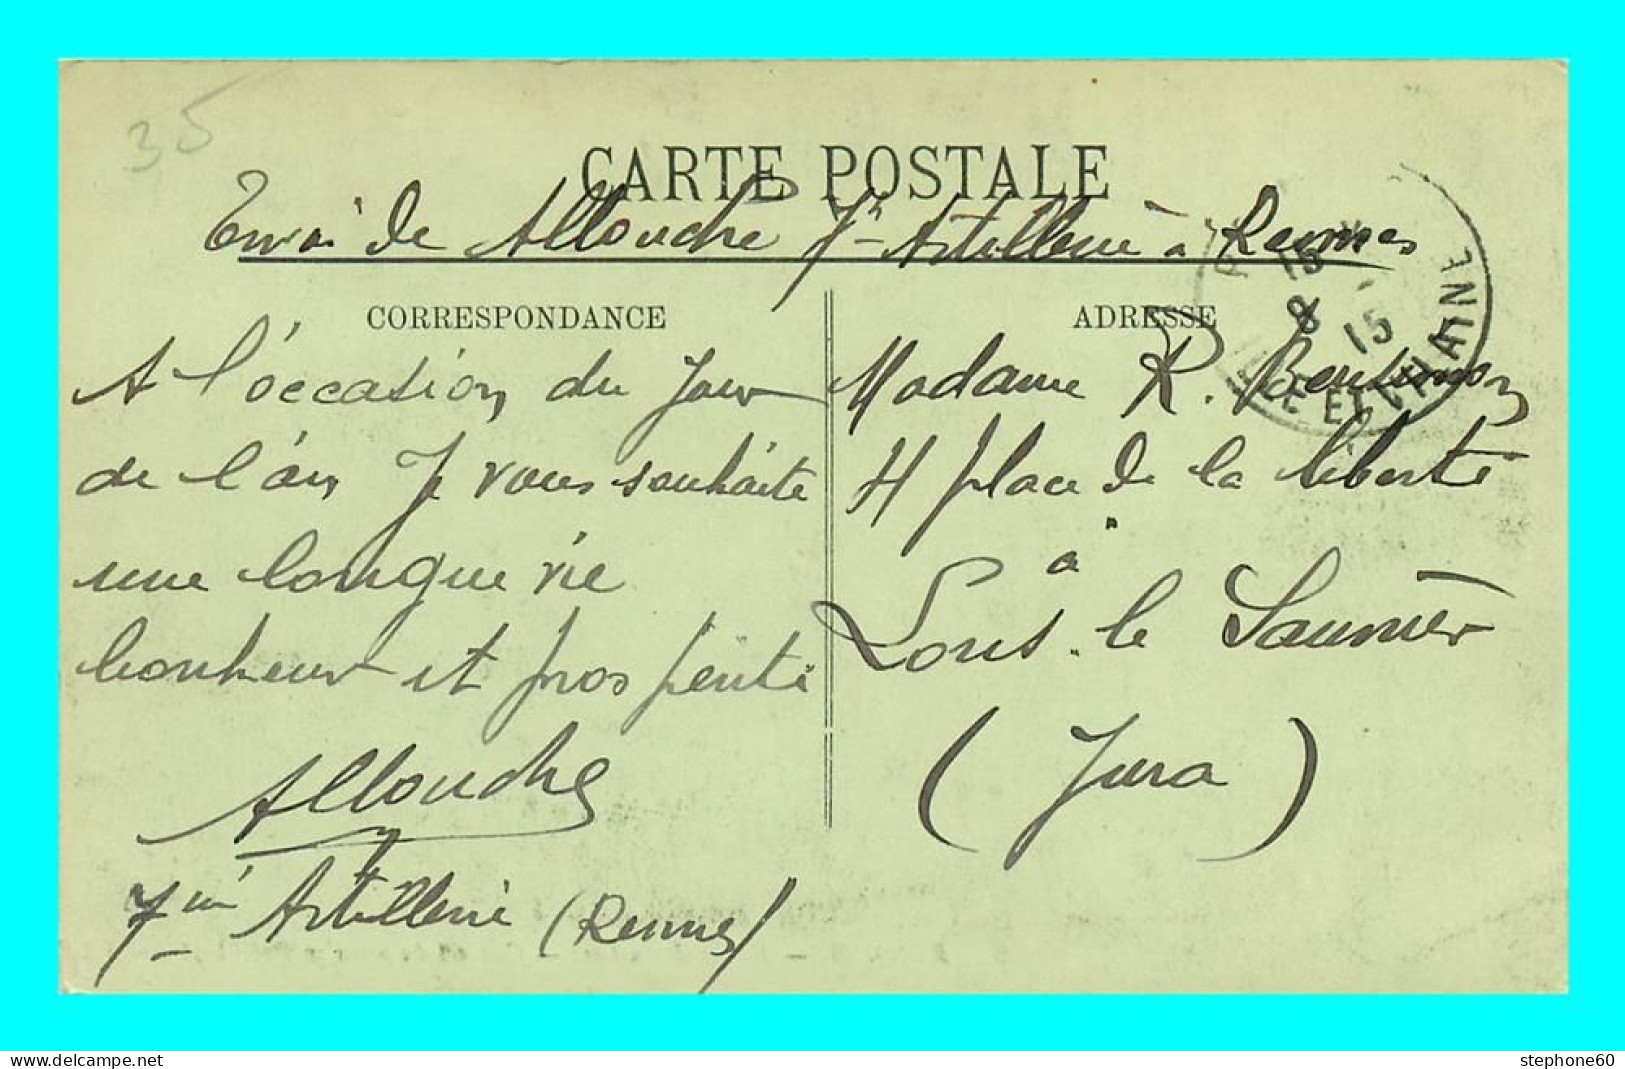 35
CARTE POSTALE
Envoi de Allouche 7e Artillerie à Rennes
CORRESPONDANCE
A l'occasion du Jour
de l'an Je vous souhaite
une longue vie
bonheur et prospérité
Allouche
7ème Artillerie (Rennes)
ADRESSE
Madame R.
4 place de la liberté
à
Lons-le Saunier
(Jura)
15
8 15
ILLE ET VILAINE
stephone60